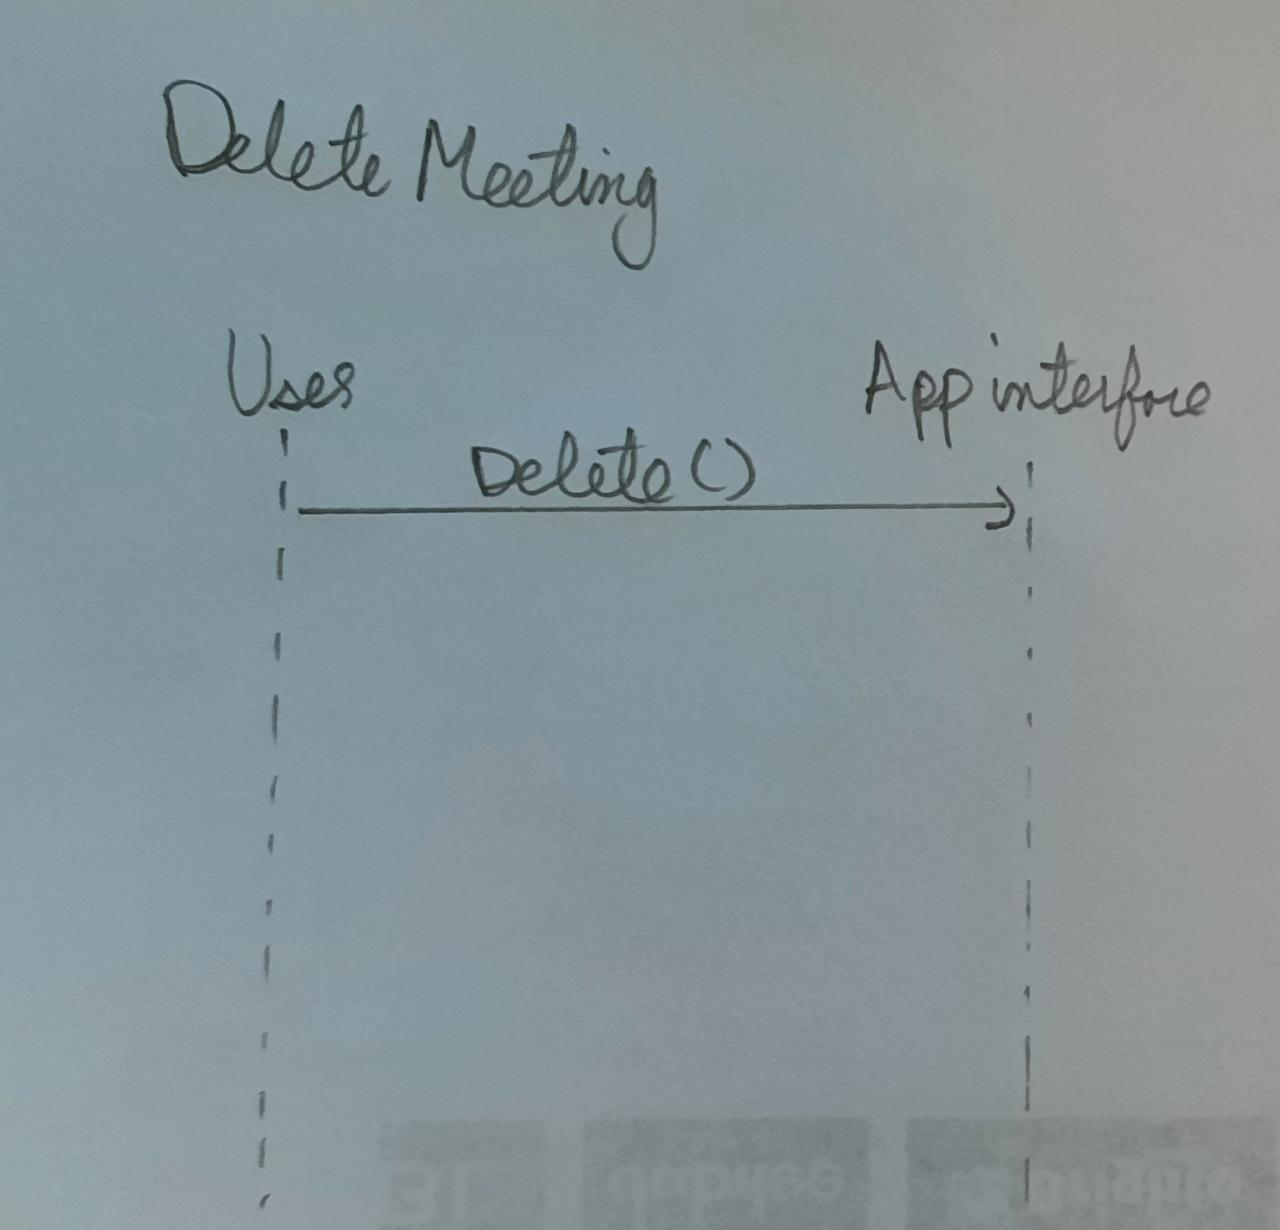 Delete Meeting
User
App interface
Delete()